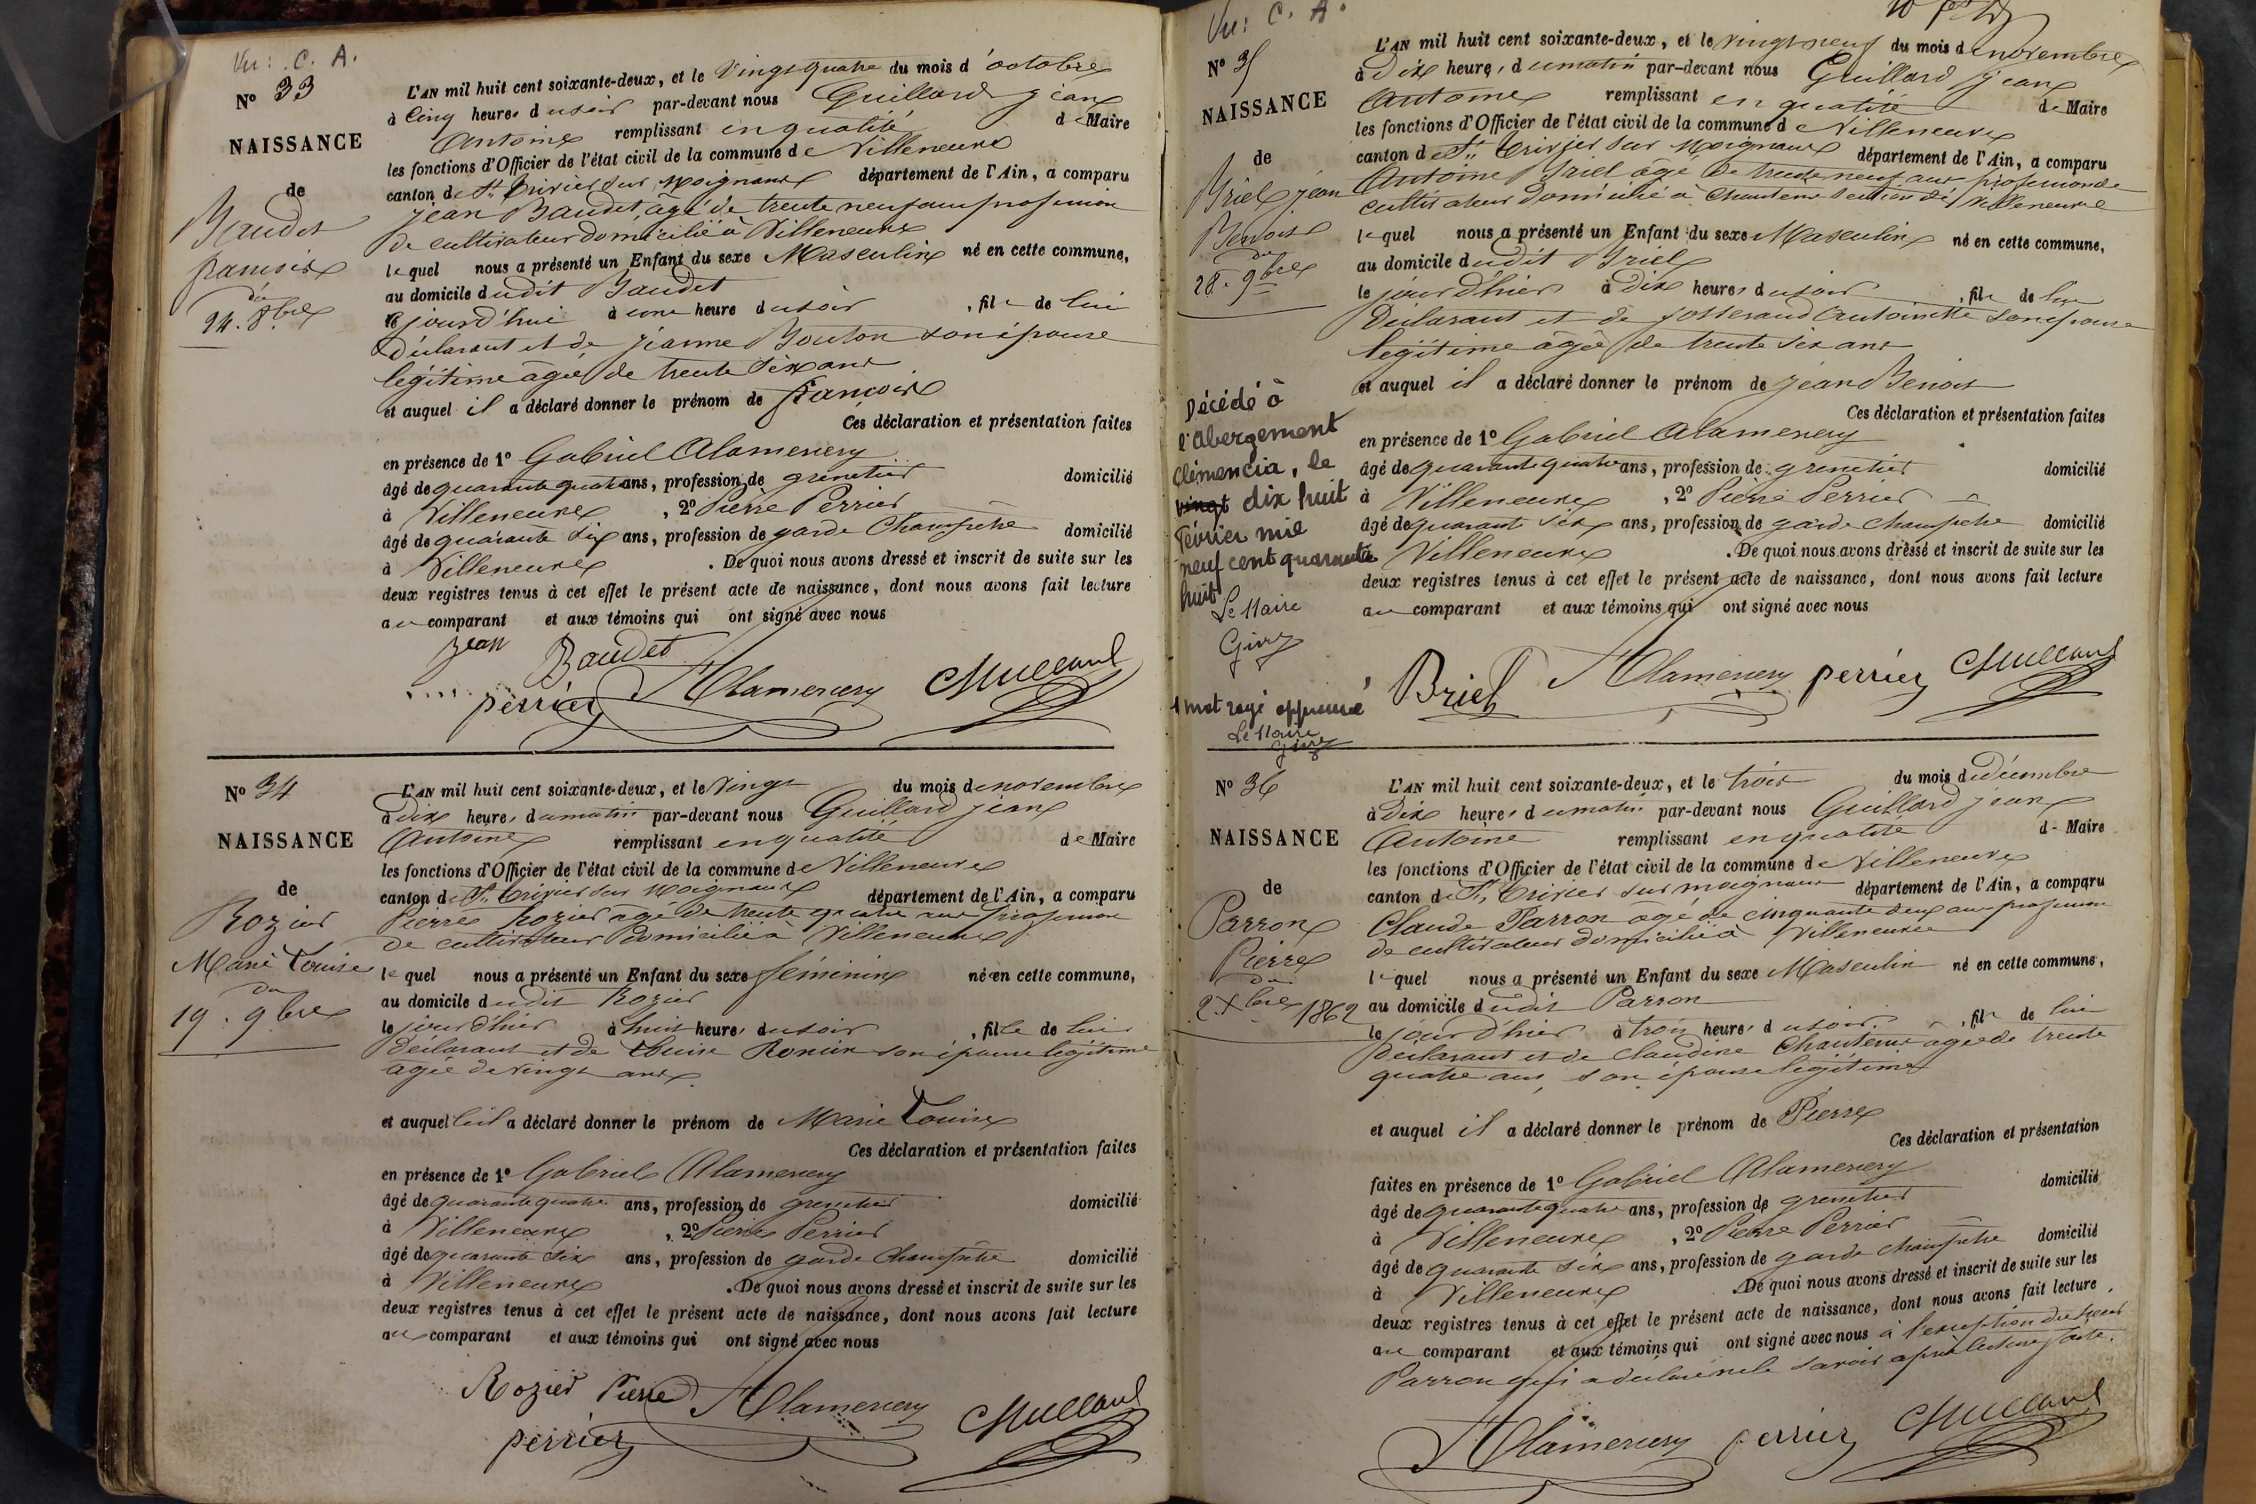 Vu: C. A.
N° 33
NAISSANCE
de
Baudet
françois
du
24. 8bre
L'AN mil huit cent soixante-deux, et le vingt quatre du mois d'octobre
à cinq heures du soir par-devant nous Guillard jean
Antoine remplissant en qualité de Maire
les fonctions d'Officier de l'état civil de la commune de Villeneuve
canton de St. Trivier sur Moignans département de l'Ain, a comparu
jean Baudet, âgé de trente neuf ans profession
de cultivateur domicilié à Villeneuve
lequel nous a présenté un Enfant du sexe Masculin né en cette commune,
au domicile dudit Baudet
le jourd'hui à une heure du soir, fils de lui
déclarant et de jeanne Bouton son épouse
légitime âgée de trente six ans
et auquel il a déclaré donner le prénom de françois
Ces déclaration et présentation faites
en présence de 1° Gabriel Alamercery
âgé de quarante quatre ans, profession de grenetier domicilié
à Villeneuve, 2° Pierre Perrier
âgé de quarante six ans, profession de garde Champêtre domicilié
à Villeneuve. De quoi nous avons dressé et inscrit de suite sur les
deux registres tenus à cet effet le présent acte de naissance, dont nous avons fait lecture
au comparant et aux témoins qui ont signé avec nous
jean Baudet
perrier Alamercery Guillard
N° 34
NAISSANCE
de
Rozier
Marie Louise
du
19. 9bre
L'AN mil huit cent soixante-deux, et le vingt du mois de novembre
à dix heures du matin par-devant nous Guillard jean
Antoine remplissant en qualité de Maire
les fonctions d'Officier de l'état civil de la commune de Villeneuve
canton de St. Trivier sur Moignans département de l'Ain, a comparu
Pierre Rozier âgé de trente quatre ans profession
de cultivateur domicilié à Villeneuve
lequel nous a présenté un Enfant du sexe féminin né en cette commune,
au domicile dudit Rozier
le jour d'hier à huit heures du soir, fille de lui
déclarant et de Louise son épouse légitime
âgée de vingt ans
et auquel il a déclaré donner le prénom de Marie Louise
Ces déclaration et présentation faites
en présence de 1° Gabriel Alamercery
âgé de quarante quatre ans, profession de grenetier domicilié
à Villeneuve, 2° Pierre Perrier
âgé de quarante six ans, profession de garde Champêtre domicilié
à Villeneuve. De quoi nous avons dressé et inscrit de suite sur les
deux registres tenus à cet effet le présent acte de naissance, dont nous avons fait lecture
au comparant et aux témoins qui ont signé avec nous
Rozier Pierre Alamercery Guillard
perrier
Vu: C. A.
N° 35
NAISSANCE
de
Briel jean
Benoist
du
28. 9bre
Décédé à
l'Abergement
Clémencia, le
vingt dix huit
Février mil
neuf cent quarante
huit
Le Maire
1 mot rayé approuvé
Le Maire
L'AN mil huit cent soixante-deux, et le vingt neuf du mois de novembre
à Dix heures du matin par-devant nous Guillard jean
Antoine remplissant en qualité de Maire
les fonctions d'Officier de l'état civil de la commune de Villeneuve
canton de St. Trivier sur Moignans département de l'Ain, a comparu
Antoine Briel âgé de trente neuf ans profession de
cultivateur domicilié à Chanteins section de Villeneuve
lequel nous a présenté un Enfant du sexe Masculin né en cette commune,
au domicile dudit Briel
le jour d'hier à Dix heures du soir, fils de lui
Déclarant et de josserand Antoinette son épouse
légitime âgée de trente six ans
et auquel il a déclaré donner le prénom de jean Benoist
Ces déclaration et présentation faites
en présence de 1° Gabriel Alamercery
âgé de quarante quatre ans, profession de grenetier domicilié
à Villeneuve, 2° Pierre Perrier
âgé de quarante six ans, profession de garde champêtre domicilié
à Villeneuve. De quoi nous avons dressé et inscrit de suite sur les
deux registres tenus à cet effet le présent acte de naissance, dont nous avons fait lecture
au comparant et aux témoins qui ont signé avec nous
Briel Alamercery perrier Guillard
N° 36
NAISSANCE
de
Parron
Pierre
du
2 Xbre 1862
L'AN mil huit cent soixante-deux, et le trois du mois de décembre
à Dix heures du matin par-devant nous Guillard jean
Antoine remplissant en qualité de Maire
les fonctions d'Officier de l'état civil de la commune de Villeneuve
canton de St. Trivier sur moignans département de l'Ain, a comparu
Claude Parron âgé de cinquante deux ans profession
de cultivateur domicilié à Villeneuve
lequel nous a présenté un Enfant du sexe Masculin né en cette commune,
au domicile dudit Parron
le jour d'hier à trois heures du soir, fils de lui
Déclarant et de Claudine Chanteur âgée de trente
quatre ans, son épouse légitime
et auquel il a déclaré donner le prénom de Pierre
Ces déclaration et présentation
faites en présence de 1° Gabriel Alamercery domicilié
âgé de quarante quatre ans, profession de grenetier
à Villeneuve, 2° Pierre Perrier
âgé de quarante six ans, profession de garde champêtre domicilié
à Villeneuve. De quoi nous avons dressé et inscrit de suite sur les
deux registres tenus à cet effet le présent acte de naissance, dont nous avons fait lecture
au comparant et aux témoins qui ont signé avec nous à l'exception du sieur
Parron qui a déclaré ne le savoir après lecture faite.
Alamercery perrier Guillard